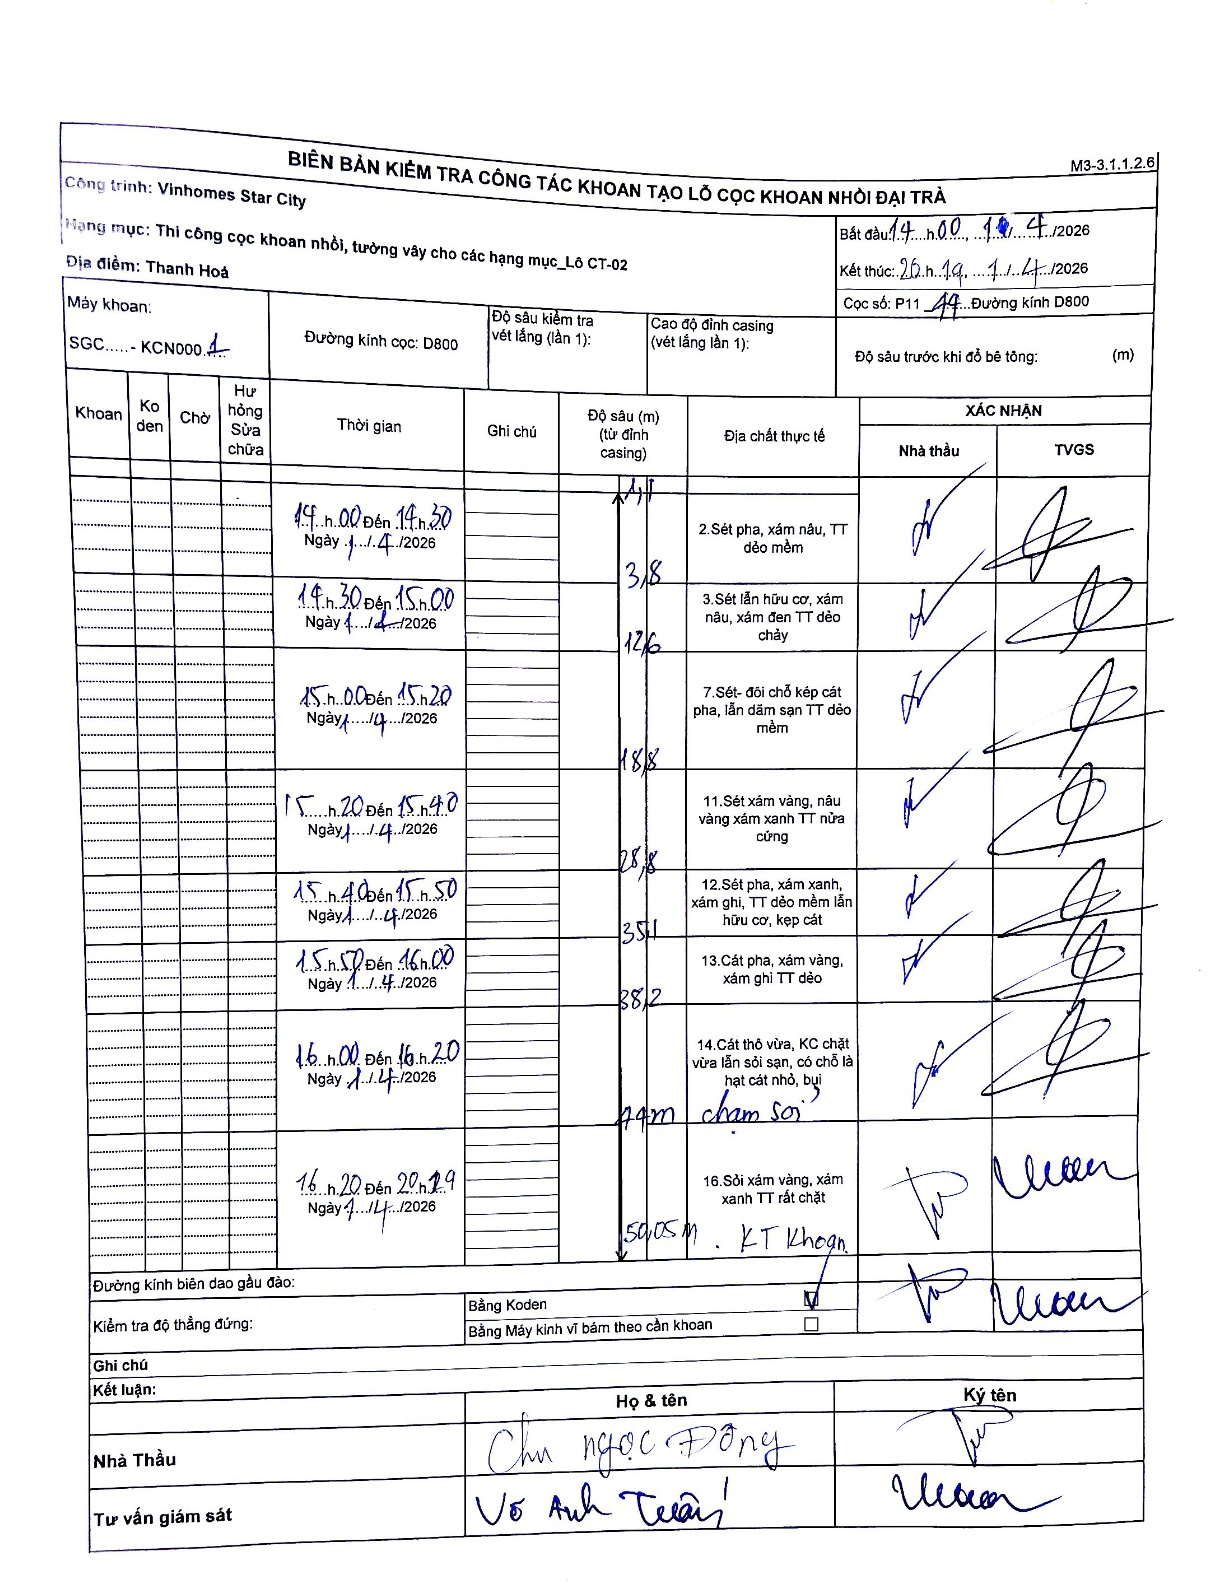 M3-3.1.1.2.6
BIÊN BẢN KIỂM TRA CÔNG TÁC KHOAN TẠO LỖ CỌC KHOAN NHỒI ĐẠI TRÀ
Công trình: Vinhomes Star City
Hạng mục: Thi công cọc khoan nhồi, tường vây cho các hạng mục_Lô CT-02
Địa điểm: Thanh Hoá
Bắt đầu:14...h.00..., 1./..4../2026
Kết thúc:.20.h.19., .1./..4.../2026
Cọc số: P11 ...Đường kính D800
Máy khoan:
SGC.....- KCN000.1
Đường kính cọc: D800
Độ sâu kiểm tra
vét lắng (lần 1):
Cao độ đỉnh casing
(vét lắng lần 1):
Độ sâu trước khi đổ bê tông: (m)
Khoan
Ko
den
Chờ
Hư
hỏng
Sửa
chữa
Thời gian
Ghi chú
Độ sâu (m)
(từ đỉnh
casing)
Địa chất thực tế
XÁC NHẬN
Nhà thầu
TVGS
1,1
14..h.00 Đến 14h.30
Ngày .1.../.4../2026
2.Sét pha, xám nâu, TT
dẻo mềm
3,8
14.h.30 Đến 15h.00
Ngày 1.../.4../2026
3.Sét lẫn hữu cơ, xám
nâu, xám đen TT dẻo
chảy
12,6
15.h..00 Đến 15h.20
Ngày 1..../..4../2026
7.Sét- đôi chỗ kép cát
pha, lẫn dăm sạn TT dẻo
mềm
18,8
15....h.20 Đến 15.h.40
Ngày 1..../..4../2026
11.Sét xám vàng, nâu
vàng xám xanh TT nửa
cứng
28,8
15..h.40 Đến 15h.50
Ngày 1.../..4./2026
12.Sét pha, xám xanh,
xám ghi, TT dẻo mềm lẫn
hữu cơ, kẹp cát
35,1
15.h.50 Đến 16h.00
Ngày .1../..4../2026
13.Cát pha, xám vàng,
xám ghi TT dẻo
38,2
16.h.00 Đến 16.h..20
Ngày .1../..4../2026
14.Cát thô vừa, KC chặt
vừa lẫn sỏi sạn, có chỗ là
hạt cát nhỏ, bụi
44m chạm sỏi
16..h.20 Đến 20h.19
Ngày 1.../4.../2026
16.Sỏi xám vàng, xám
xanh TT rất chặt
50,05m . KT Khoan.
Đường kính biên dao gầu đào:
Kiểm tra độ thẳng đứng:
Bằng Koden
Bằng Máy kinh vĩ bám theo cần khoan
Ghi chú
Kết luận:
Họ & tên
Ký tên
Nhà Thầu
Chu Ngọc Đông
Tư vấn giám sát
Võ Anh Tuấn